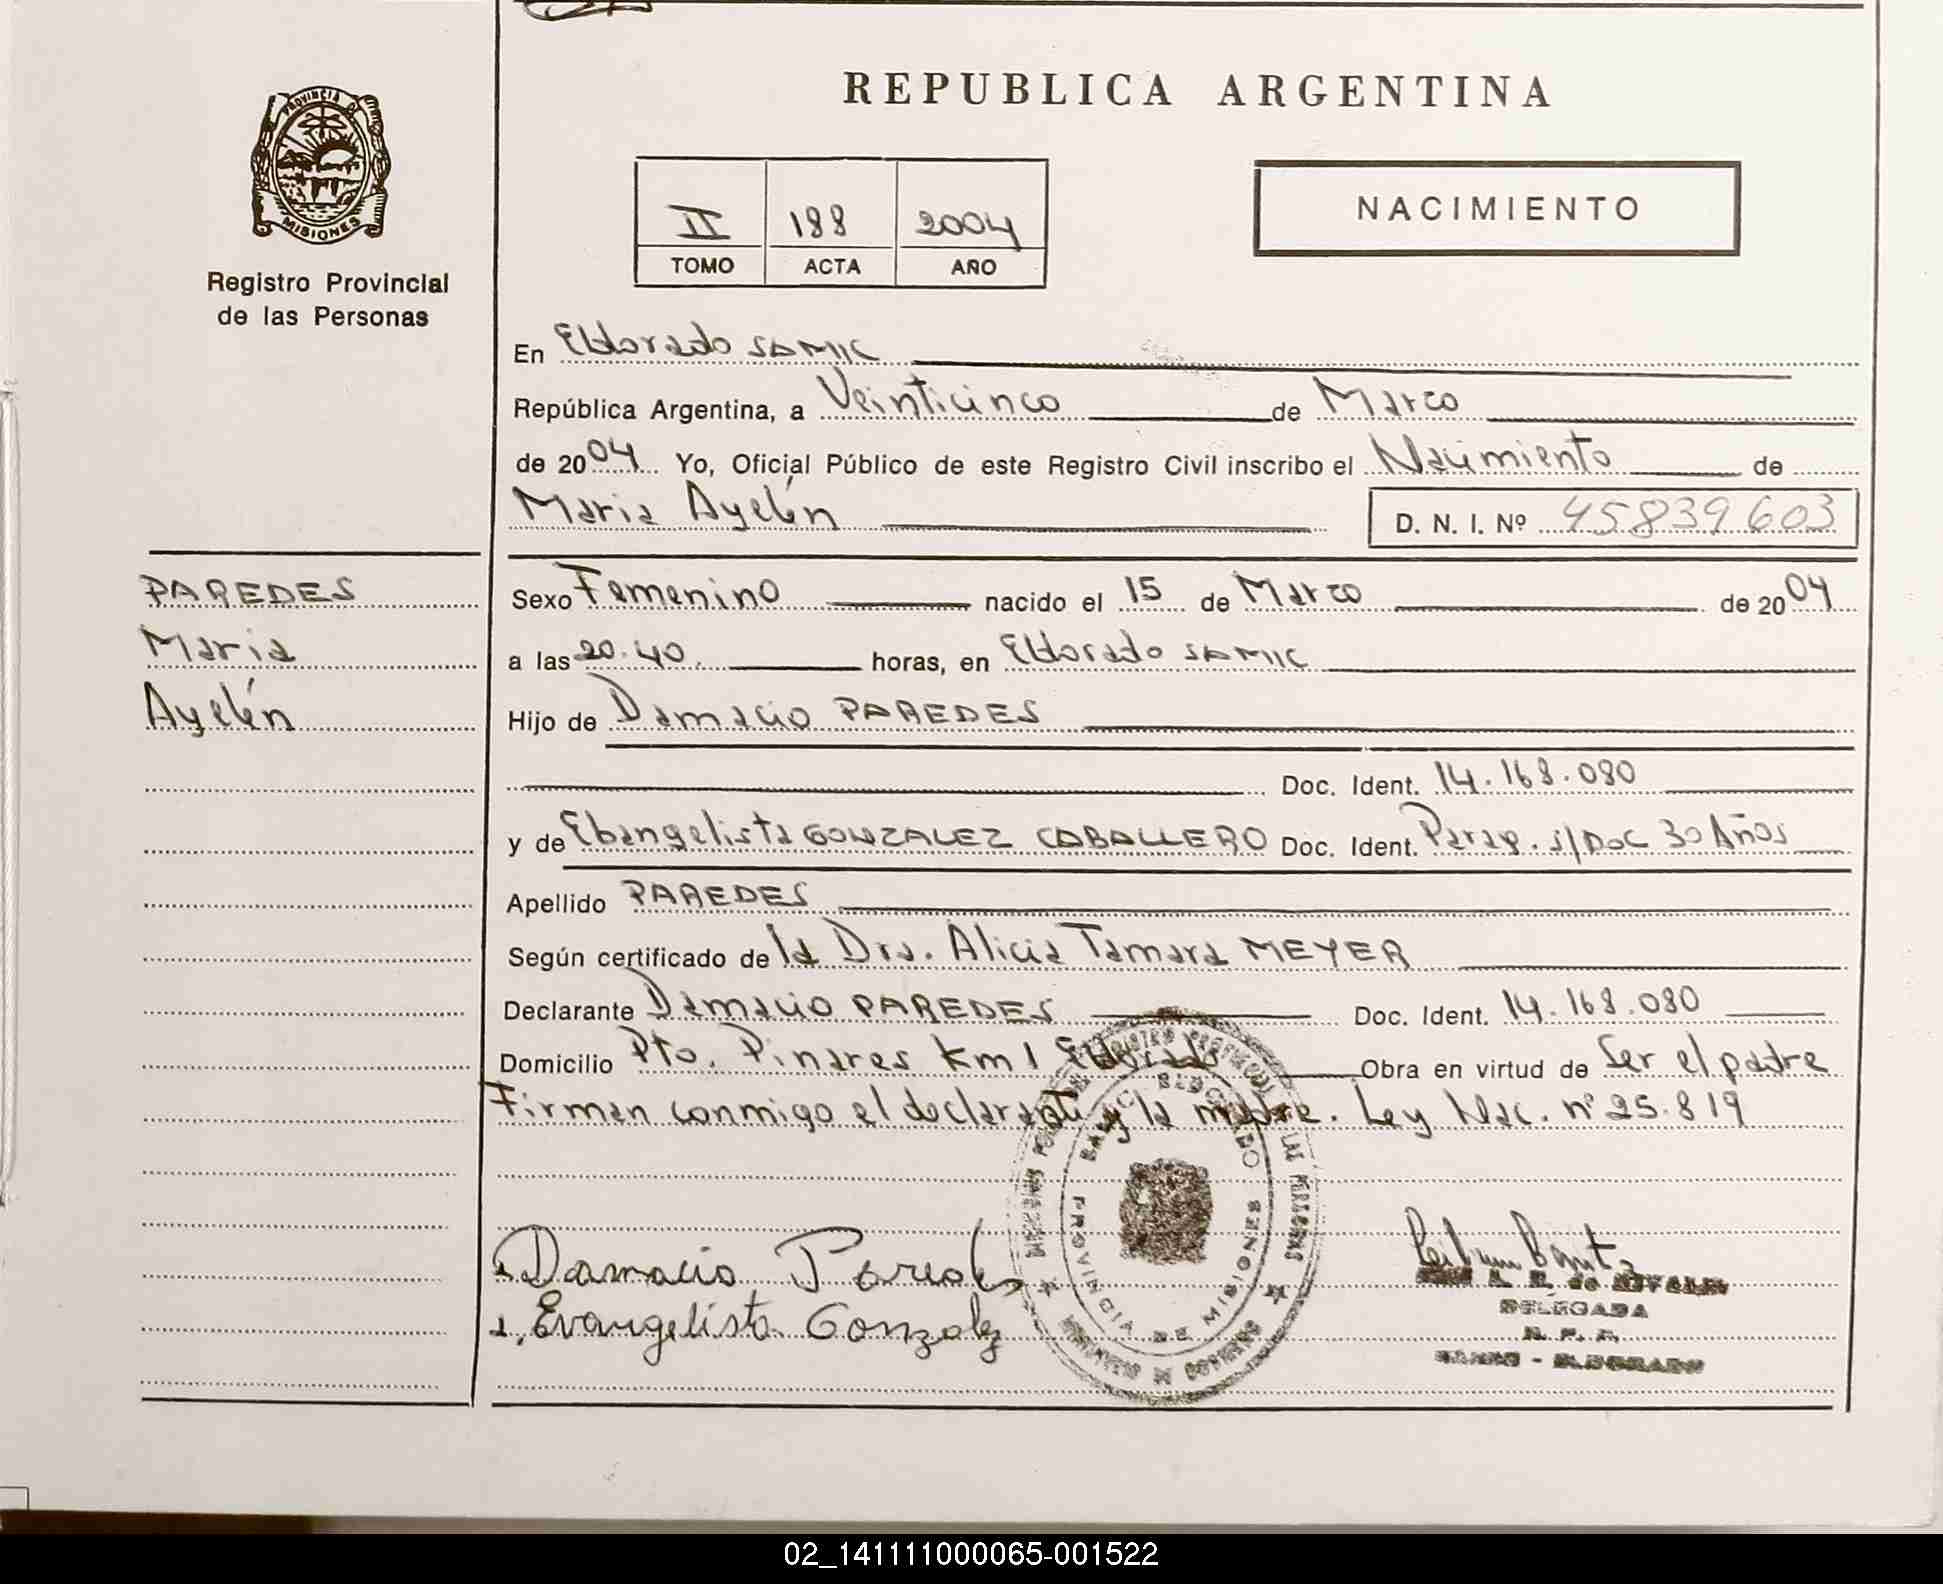 REPUBLICA ARGENTINA
PROVINCIA DE
MISIONES
Registro Provincial
de las Personas
II 188 2004
TOMO ACTA AÑO
NACIMIENTO
En Eldorado SAMIC
República Argentina, a Veinticinco de Marzo
de 2004 Yo, Oficial Público de este Registro Civil inscribo el Nacimiento de
Maria Ayelén D. N. I. Nº 45839603
PAREDES
Maria
Ayelén
Sexo Femenino nacido el 15 de Marzo de 2004
a las 20.40. horas, en Eldorado SAMIC
Hijo de Damacio PAREDES
Doc. Ident. 14.168.080
y de Ebangelista GONZALEZ CABALLERO Doc. Ident. Parag. s/Doc 30 Años
Apellido PAREDES
Según certificado de la Dra. Alicia Tamara MEYER
Declarante Damacio PAREDES Doc. Ident. 14.168.080
Domicilio Pto. Pinares Km 1 Eldorado Obra en virtud de Ser el padre
Firman conmigo el declarante y la madre. Ley Nac. nº 25.819
PROVINCIA DE MISIONES
Damacio Paredes
Evangelista Gonzalez
DELEGADA
R. P. P.
- ELDORADO
02_141111000065-001522